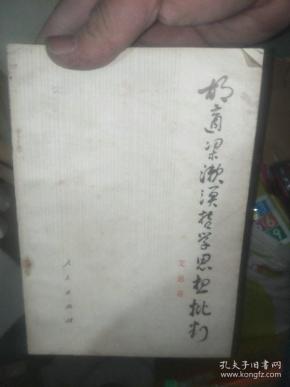 胡适梁漱溟哲学思想批判
艾思奇
人民出版社
孔夫子旧书网